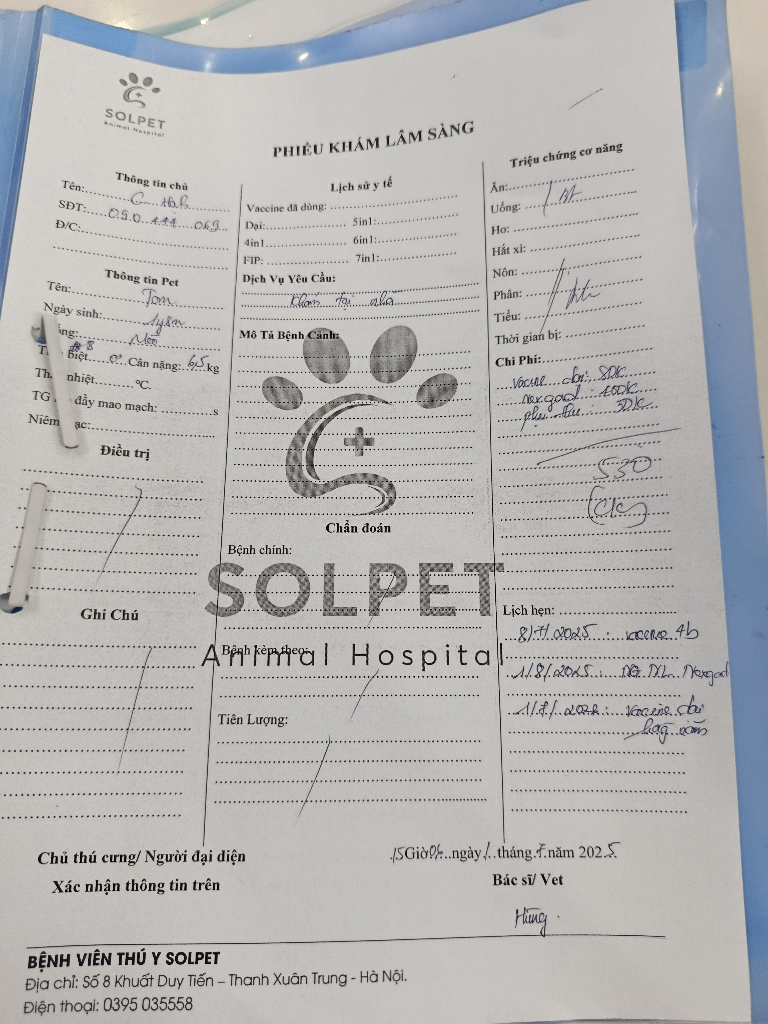 SOLPET
Animal Hospital
PHIẾU KHÁM LÂM SÀNG
Thông tin chủ
Tên:
SĐT: 090 069
Đ/C:
Thông tin Pet
Tên: Tom
Ngày sinh:
Mèo
Biệt Cân nặng: 6,5 kg
nhiệt °C.
TG đầy mao mạch: s
Niêm ạc:
Điều trị
Ghi Chú
Lịch sử y tế
Vaccine đã dùng:
Dại: 5in1:
4in1 6in1:
FIP: 7in1:
Dịch Vụ Yêu Cầu:
Khám tại nhà
Mô Tả Bệnh Cảnh:
Chẩn đoán
Bệnh chính:
SOLPET
Bệnh kèm theo:
Animal Hospital
Tiên Lượng:
Triệu chứng cơ năng
Ăn:
Uống: bt
Ho:
Hắt xì:
Nôn:
Phân: bt
Tiểu:
Thời gian bị:
Chi Phí:
Vacine dại: 80K
Nexgard: 400K
phụ thu: 50K
530
(ck)
Lịch hẹn:
8/7/2025: vacine 4b
1/8/2025: NG TXL Nexgard
vacine dại
hàng năm
Chủ thú cưng/ Người đại diện
Xác nhận thông tin trên
15Giờ ngày 1 tháng 7 năm 2025
Bác sĩ/ Vet
Hùng
BỆNH VIÊN THÚ Y SOLPET
Địa chỉ: Số 8 Khuất Duy Tiến – Thanh Xuân Trung - Hà Nội.
Điện thoại: 0395 035558